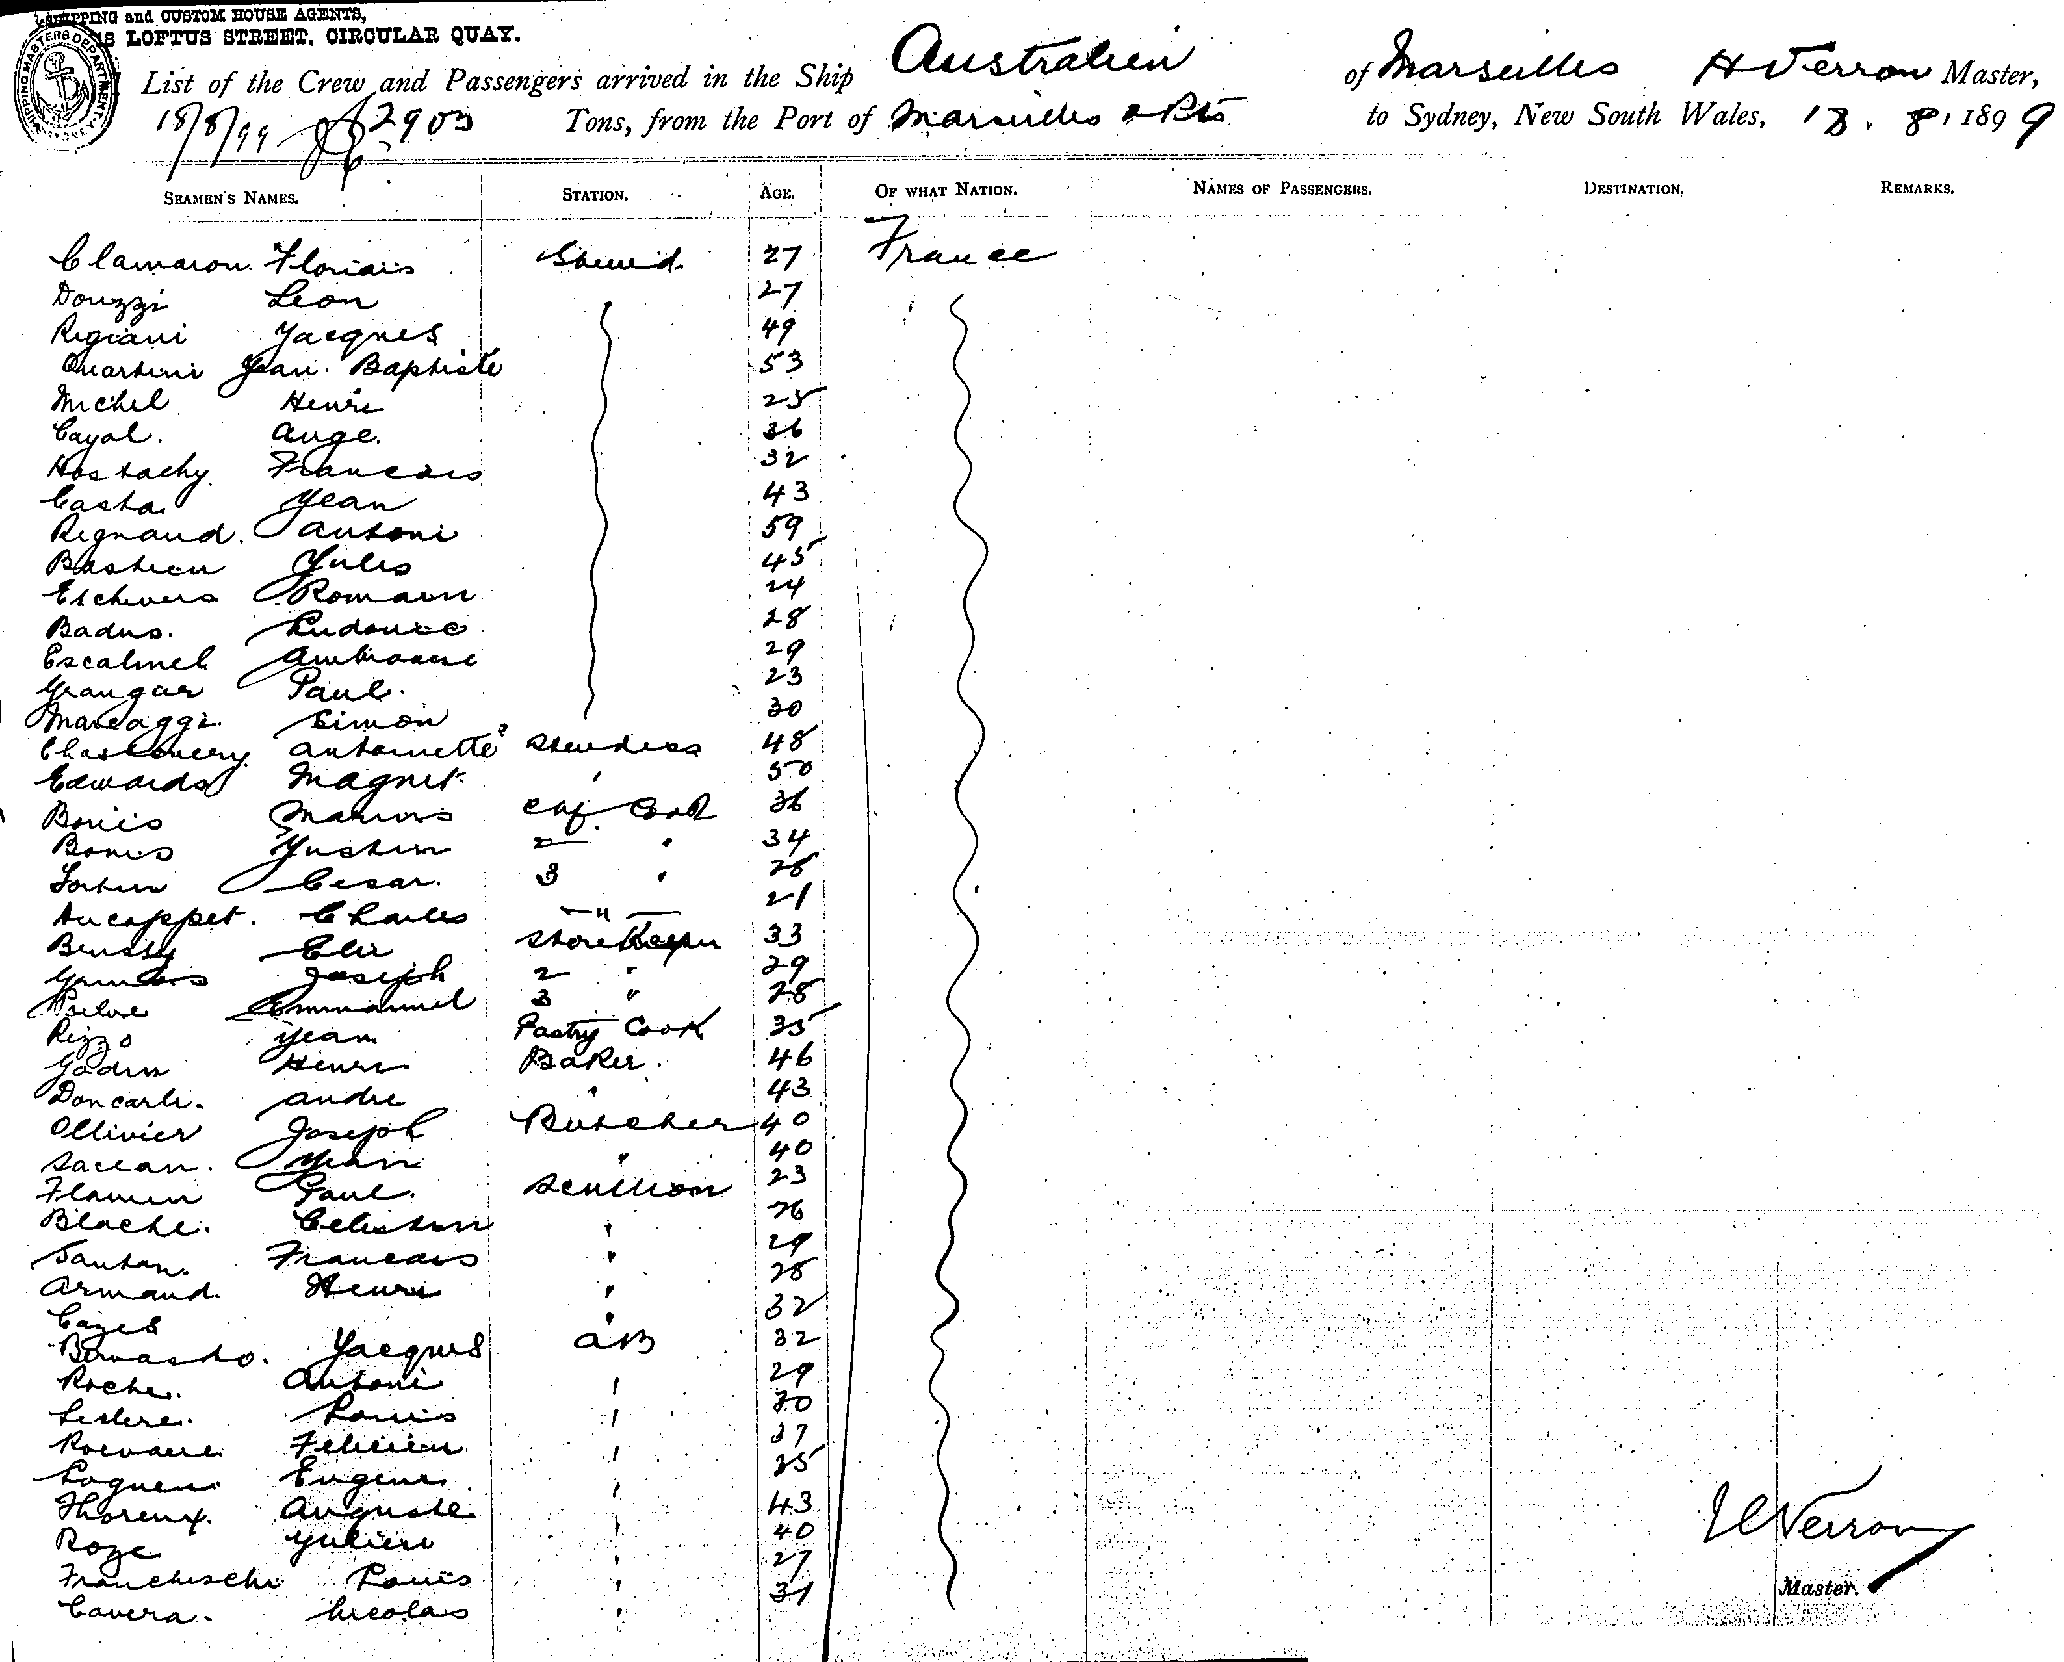 SHIPPING and CUSTOM HOUSE AGENTS,
18 LOFTUS STREET, CIRCULAR QUAY.
List of the Crew and Passengers arrived in the Ship Australien of Marseilles H Verron Master,
18/8/99 2903 Tons, from the Port of Marseilles & Pts to Sydney, New South Wales, 18. 8. 1899
SEAMEN'S NAMES. STATION. AGE. OF WHAT NATION. NAMES OF PASSENGERS. DESTINATION. REMARKS.
Clamaron Floriais Steward 27 France
Douzzi Leon 27
Regiani Jacques 49
Quartini Jean Baptiste 53
Michel Henri 25
Cayol. Ange. 36
Hostachy Francois 32
Casta Jean 43
Regnaud. Antoni 59
Bastien Jules 45
Eschivers Romain 24
Badus. Ludovic 28
Escalmel Ambroise 29
Grangar Paul. 23
Marcaggi. Simon 30
Antoinette Stewdess 48
Edwards Magnet 50
Bonis Marius Chf. Cook 36
Bonis Justin 2 " 34
Fortin Cesar. 3 " 28
Aucoppet. Charles " 21
Beusty Elie Storekeeper 33
Joseph 2 " 29
Emmanuel 3 " 28
Rizzo Jean Pastry Cook 35
Godin Henri Baker. 46
Doncarli. Andre " 43
Ollivier Joseph Butcher 40
Saccan. Jean " 40
Flamen Paul. Scullion 23
Blache. Celestin " 26
Santan. Francois " 29
Armand. Henri " 28
Cazes " 32
Bernasko. Jacques AB 32
Roche. Antoni " 29
Leslere. Louis " 30
Felicien " 27
Loguen Eugene " 25
Thoreux. Auguste " 43
Roze Julien " 40
Francheschi Louis " 27
Cavera. Nicolas " 31
H Verron
Master.